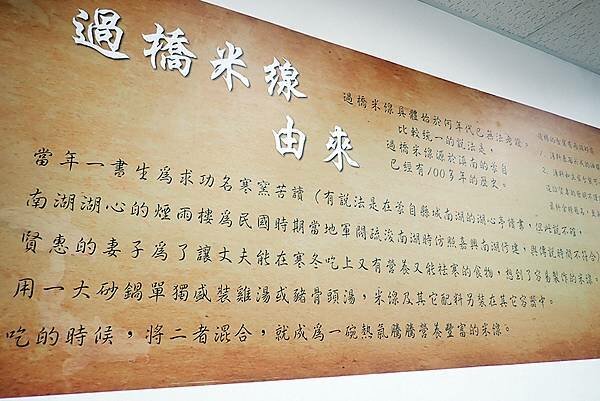 過橋米線
由來
過橋米線具體始於何年代已無法考證。
比較統一的說法是:
過橋米線源於滇南的蒙自
已經有100多年的歷史。
當年一書生為求功名寒窯苦讀(有說法是在蒙自縣城南湖的湖心亭讀書,但此說不確,
南湖湖心的煙雨樓為民國時期當地軍閥疏浚南湖時仿照嘉興南湖修建,與傳說時間不符合)
賢惠的妻子為了讓丈夫能在寒冬吃上又有營養又能祛寒的食物,想到了容易製作的米線。
用一大砂鍋單獨盛裝雞湯或豬骨頭湯,米線及其它配料另裝在其它容器中。
吃的時候,將二者混合,就成為一碗熱氣騰騰營養豐富的米線。